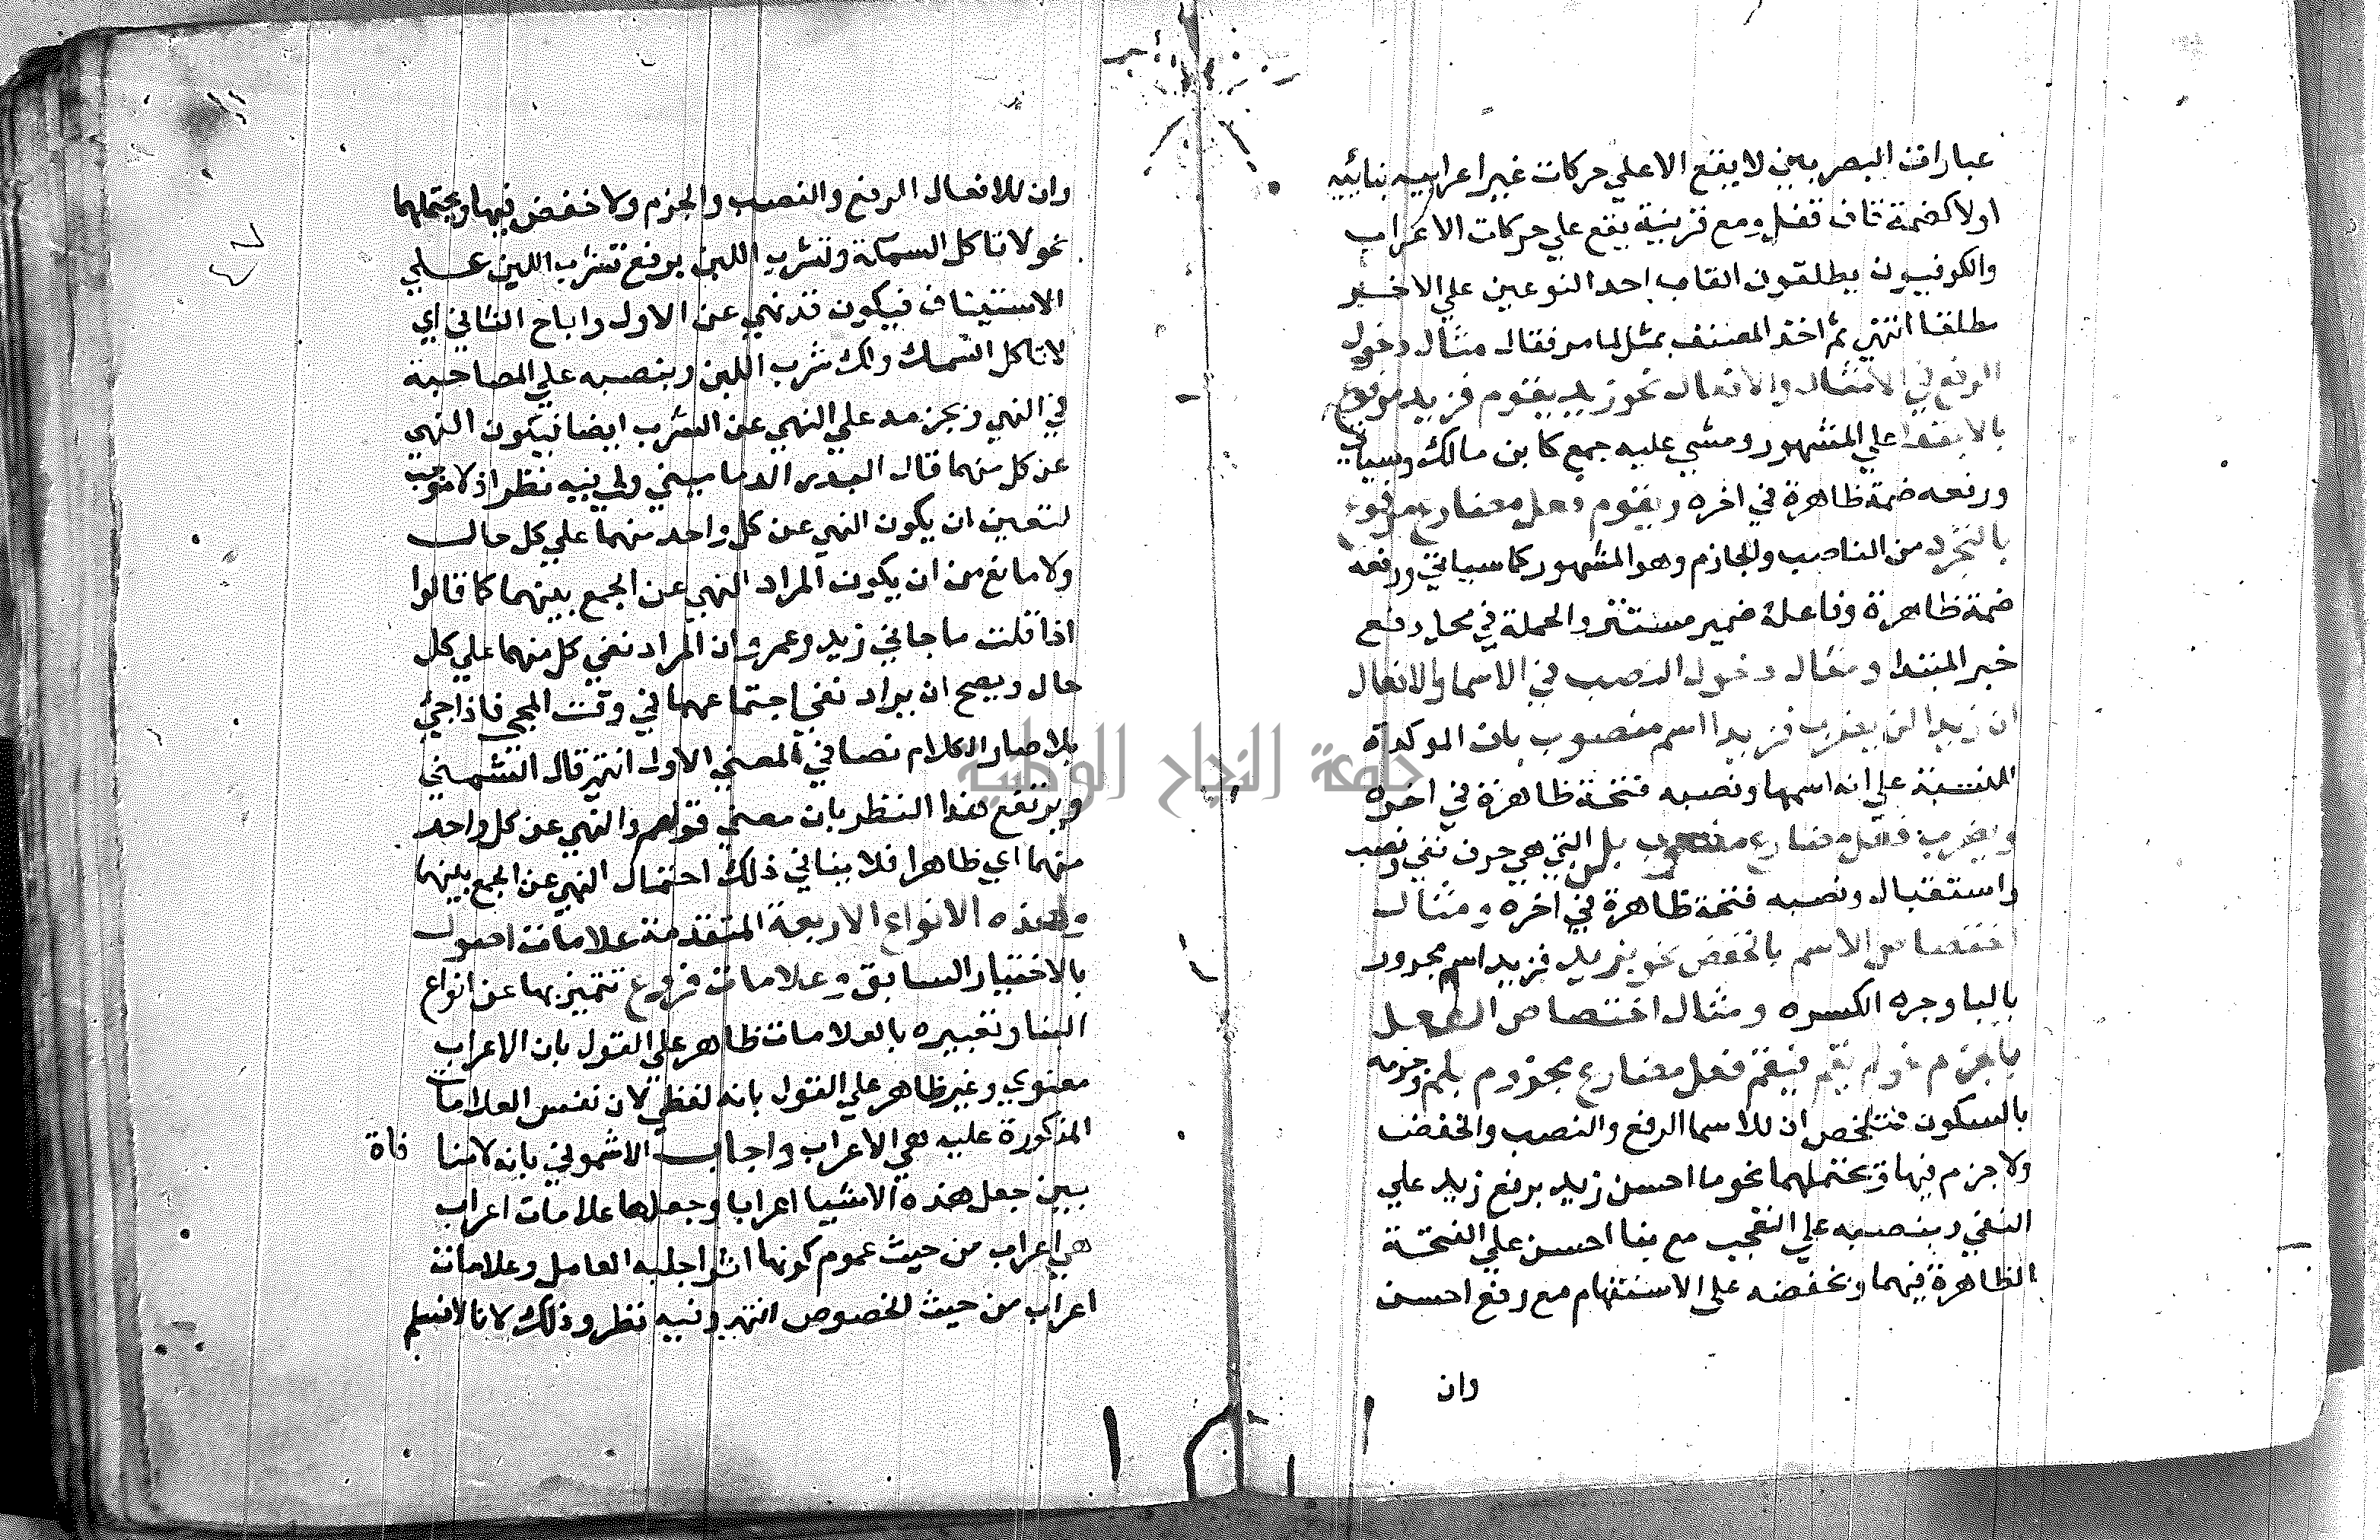 عبارات البصريين لا يقع الا علي حركات غير اعرابيه بنائيه
اولا كضمة قاف قفل ومع قرينية يقع علي حركات الاعراب
والكوفيون يطلقون القاب احد النوعين علي الاخير
مطلقا انتهي ثم اخذ المصنف يمثل لما مر فقال مثال دخول
الرفع في الاسماء والافعال نحو زيد يقوم فزيد مرفوع
بالابتدا علي المشهور ومشي عليه جمع كابن مالك وسياتي
ورفعه ضمة ظاهرة في اخره ويقوم فعل مضارع مرفوع
بالتجرد من الناصب والجازم وهو المشهور كما سياتي ورفعه
ضمة ظاهرة وفاعله ضمير مستتر والجملة في محل رفع
خبر المبتدا ومثال دخول النصب في الاسما والافعال
ان زيدا لن يضرب فزيدا اسم منصوب بان الموكدة
المنسبة علي انه اسمها ونصبه فتحة ظاهرة في اخره
ويضرب فعل مضارع منصوب بلن التي هي حرف نفي ونصب
واستقبال ونصبه فتحة ظاهرة في اخره ومثال
اختصاص الاسم بالخفض نحو بزيد فزيد اسم مجرور
بالبا وجره الكسره ومثال اختصاص الفعل
بالجزم نحو لم يقم فيقم فعل مضارع مجزوم بلم وجزمه
بالسكون فتلخص ان للاسما الرفع والنصب والخفض
ولا جزم فيها ويحتملهما نحو ما احسن زيد برفع زيد علي
النفي وبنصبه علي التعجب مع بنا احسن علي الفتحة
الظاهرة فيهما وبخفضه علي الاستفهام مع رفع احسن
وان
وان للافعال الرفع والنصب والجزم ولا خفض فيها ويحتملها
نحو لا تاكل السمكة وتشرب اللبن برفع تشرب اللبن علي
الاستيناف فيكون قد نهي عن الاول واباح الثاني اي
لا تاكل السمك ولك شرب اللبن وبنصبه علي المصاحبة
في النهي وبجزمه علي النهي عن الشرب ايضا فيكون النهي
عن كل منهما قال البدر الدماميني ولي فيه نظر اذ لا موجب
لتعين ان يكون النهي عن كل واحد منهما علي كل حال
ولا مانع من ان يكون المراد النهي عن الجمع بينهما كما قالوا
اذا قلت ما جاني زيد وعمرو ان المراد نفي كل منهما علي كل
حال ويصح ان يراد نفي اجتماعهما في وقت المجي فاذا جئ
بلا صار الكلام نصا في المعني الاول انتهي قال الشمني
ويرتفع هذا النظر بان معني قولهم والنهي عن كل واحد
منهما اي ظاهرا فلا ينافي ذلك احتمال النهي عن الجمع بينهما
ولهذه الانواع الاربعة المتقدمة علامات اصول
بالاختيار السابق وعلامات فروع تتميز بها عن انواع
البنا وتعبيره بالعلامات ظاهر علي القول بان الاعراب
معنوي وغير ظاهر علي القول بانه لفظي لان نفس العلامات
المذكورة عليه هي الاعراب واجاب الاشموني بانه لا منا
فاة
بين جعل هذه الاشيا اعرابا وجعلها علامات اعراب
هي اعراب من حيث عموم كونها اثرا جلبه العامل وعلامات
اعراب من حيث الخصوص انتهي وفيه نظر وذلك لانا لا نسلم
٤٧
جامعة النجاح الوطنية